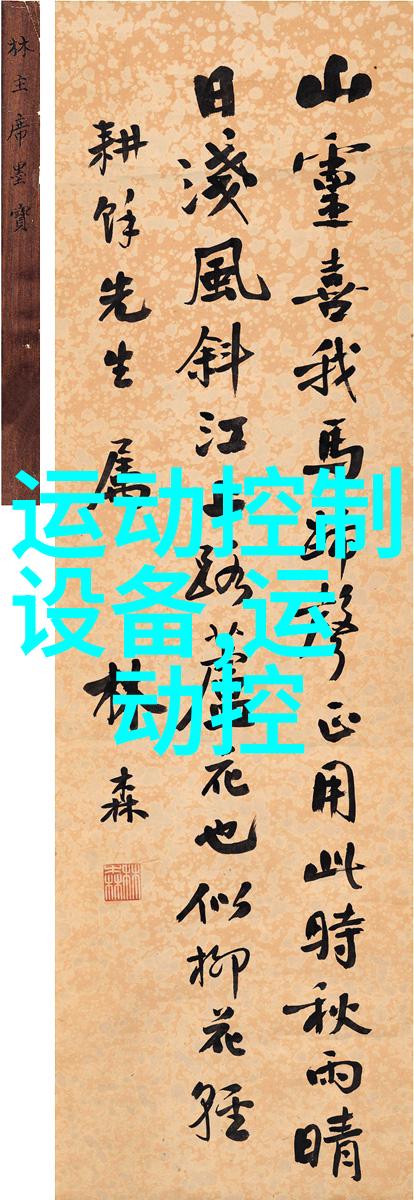 运动控制
设备,运
动控
山靈喜我馬蹄聲正用此時秋雨晴
日淺風斜江上路蘆花也似柳花輕
耕餘先生 属 林森
林主席墨寶